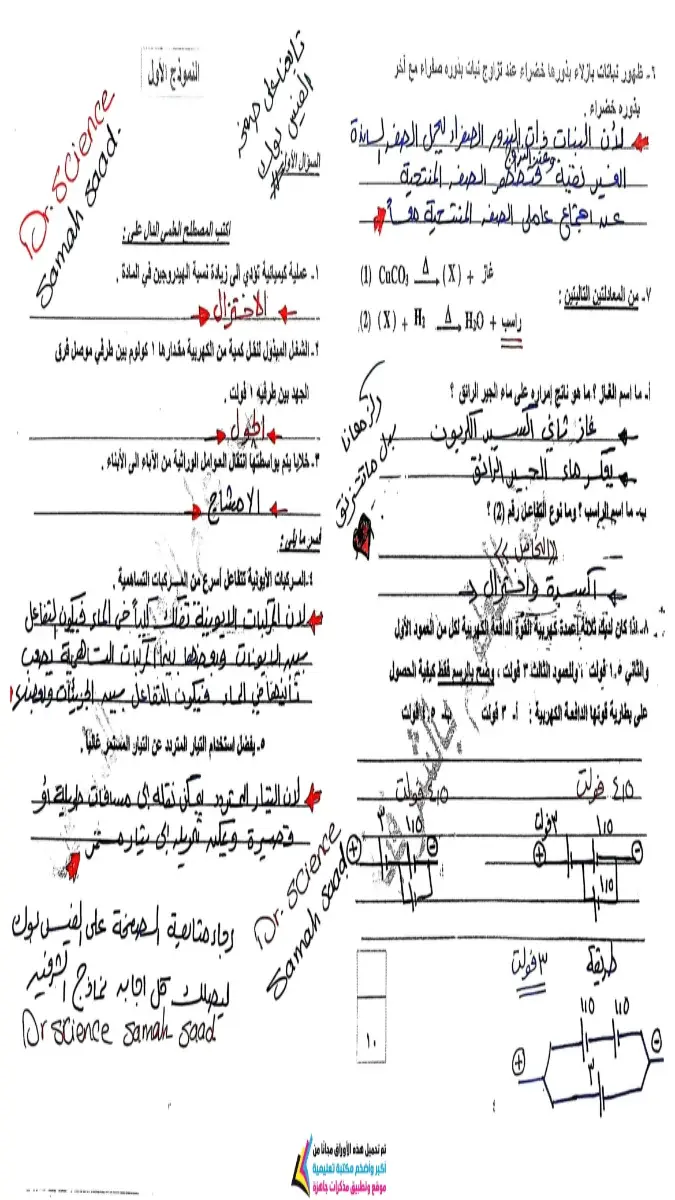 النموذج الأول
تابعنا على صفحة
الفيس بوك
Dr. Science
Samah saad.
السؤال الأول:
اكتب المصطلح العلمي الدال على :
١- عملية كيميائية تؤدي الى زيادة نسبة الهيدروجين في المادة.
الاختزال
٢- الشغل المبذول لنقل كمية من الكهربية مقدارها ١ كولوم بين طرفي موصل فرق
الجهد بين طرفيه ١ فولت.
الجول
٣- خلايا يتم بواسطتها انتقال العوامل الوراثية من الآباء الى الأبناء.
الامشاج
فسر ما يلى :
٤- المركبات الأيونية تتفاعل أسرع من المركبات التساهمية.
لان المركبات الايونية تتفكك كلياً في الماء فيكون التفاعل
بين الايونات وبعضها بينما المركبات التساهمية يصعب
تأينها في الماء فيكون التفاعل بين الجزيئات وبعضها
٥- يفضل استخدام التيار المتردد عن التيار المستمر غالباً.
لان التيار المتردد يمكن نقله إلى مسافات طويلة أو
قصيرة ويمكن تحويله إلى تيار مستمر
Dr. Science
Samah saad
رجاء متابعة الصفحة على الفيس بوك
ليصلك كل اجابه نماذج
Dr science samah saad
٦- ظهور نباتات بازلاء بذورها خضراء عند تزاوج نبات بذوره صفراء مع آخر
بذوره خضراء.
لأن النبات ذات البذور الصفراء يحمل الصفه السائدة
الغير نقية وعند التزاوج فتظهر الصفه المتنحية
عند اجتماع عاملى الصفه المتنحية معاً
٧- من المعادلتين التاليتين :
(1) CuCO₃ Δ→ (X) + غاز
(2) (X) + H₂ Δ→ H₂O + راسب
أ- ما اسم الغاز ؟ ما هو ناتج إمراره على ماء الجير الرائق ؟
غاز ثاني أكسيد الكربون
يعكر ماء الجير الرائق
ب- ما اسم الراسب ؟ وما نوع التفاعل رقم (2) ؟
((النحاس))
أكسدة واختزال
٨- اذا كان لديك ثلاثة أعمدة كهربية القوة الدافعة الكهربية لكل من العمود الأول
والثاني ١.٥ فولت ، وللعمود الثالث ٣ فولت ، وضح بالرسم فقط كيفية الحصول
على بطارية قوتها الدافعة الكهربية : أ- ٣ فولت ب- ٤.٥ فولت
٤,٥ فولت ٤,٥ فولت
٣ فولت ١,٥ ١,٥
٣ ١,٥
طريقة ٣ فولت
١,٥ ١,٥
٣
١٠
٣
٤
تم تحميل هذه الأوراق مجانا من
أكبر وأضخم مكتبة تعليمية
موقع وتطبيق مذكرات جاهزة